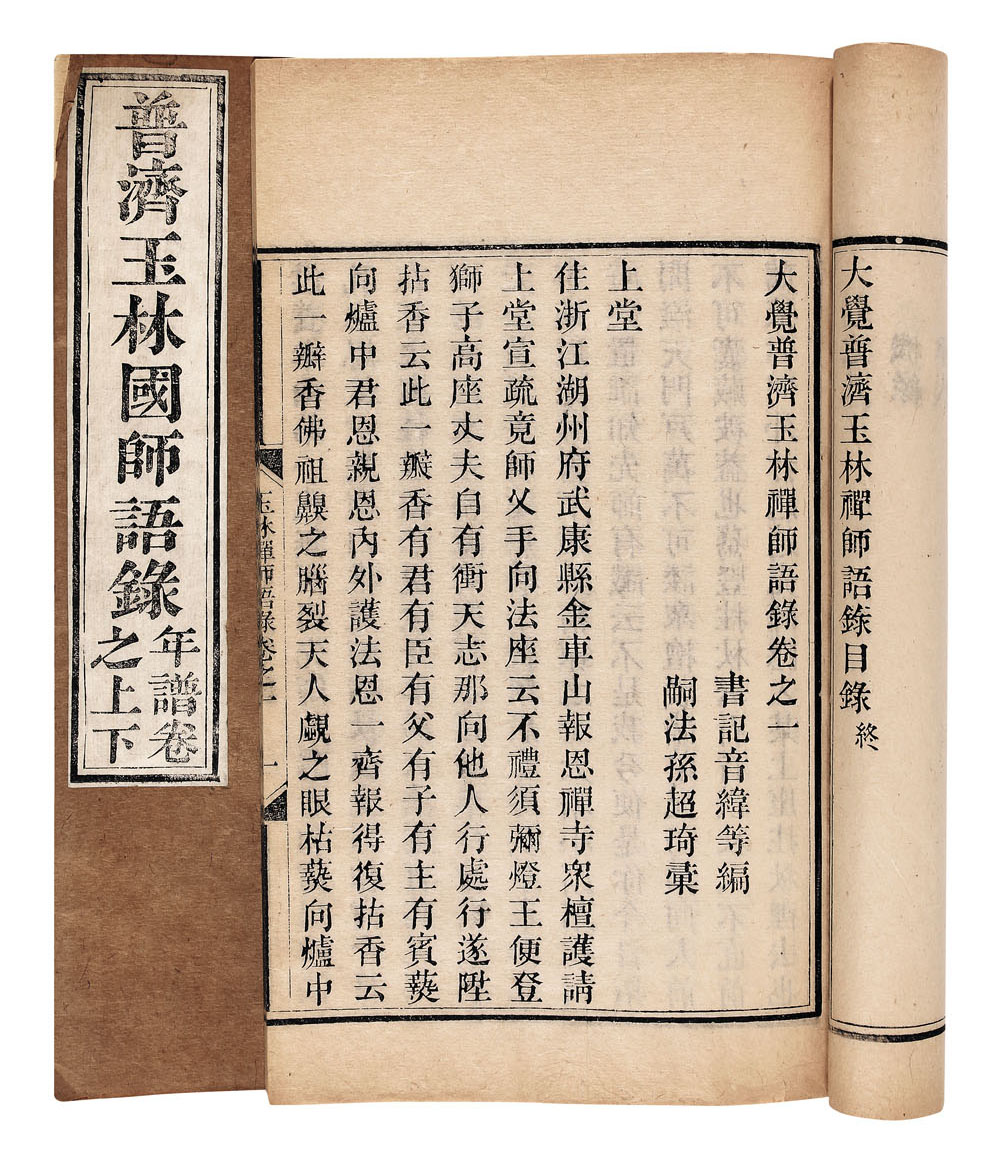 大覺普濟玉林禪師語錄目錄終
大覺普濟玉林禪師語錄卷之一
書記音緯等編
嗣法孫超琦彙
上堂
住浙江湖州府武康縣金車山報恩禪寺眾檀護請
上堂宣疏竟師叉手向法座云不禮須彌燈王便登
獅子高座丈夫自有衝天志那向他人行處行遂陞
拈香云此一瓣香有君有臣有父有子有主有賓爇
向爐中君恩親恩內外護法恩一齊報得復拈香云
此一瓣香佛祖齅之腦裂天人覷之眼枯爇向爐中
玉林禪師語錄卷之一
一
普濟玉林國師語錄
年譜卷
之上下